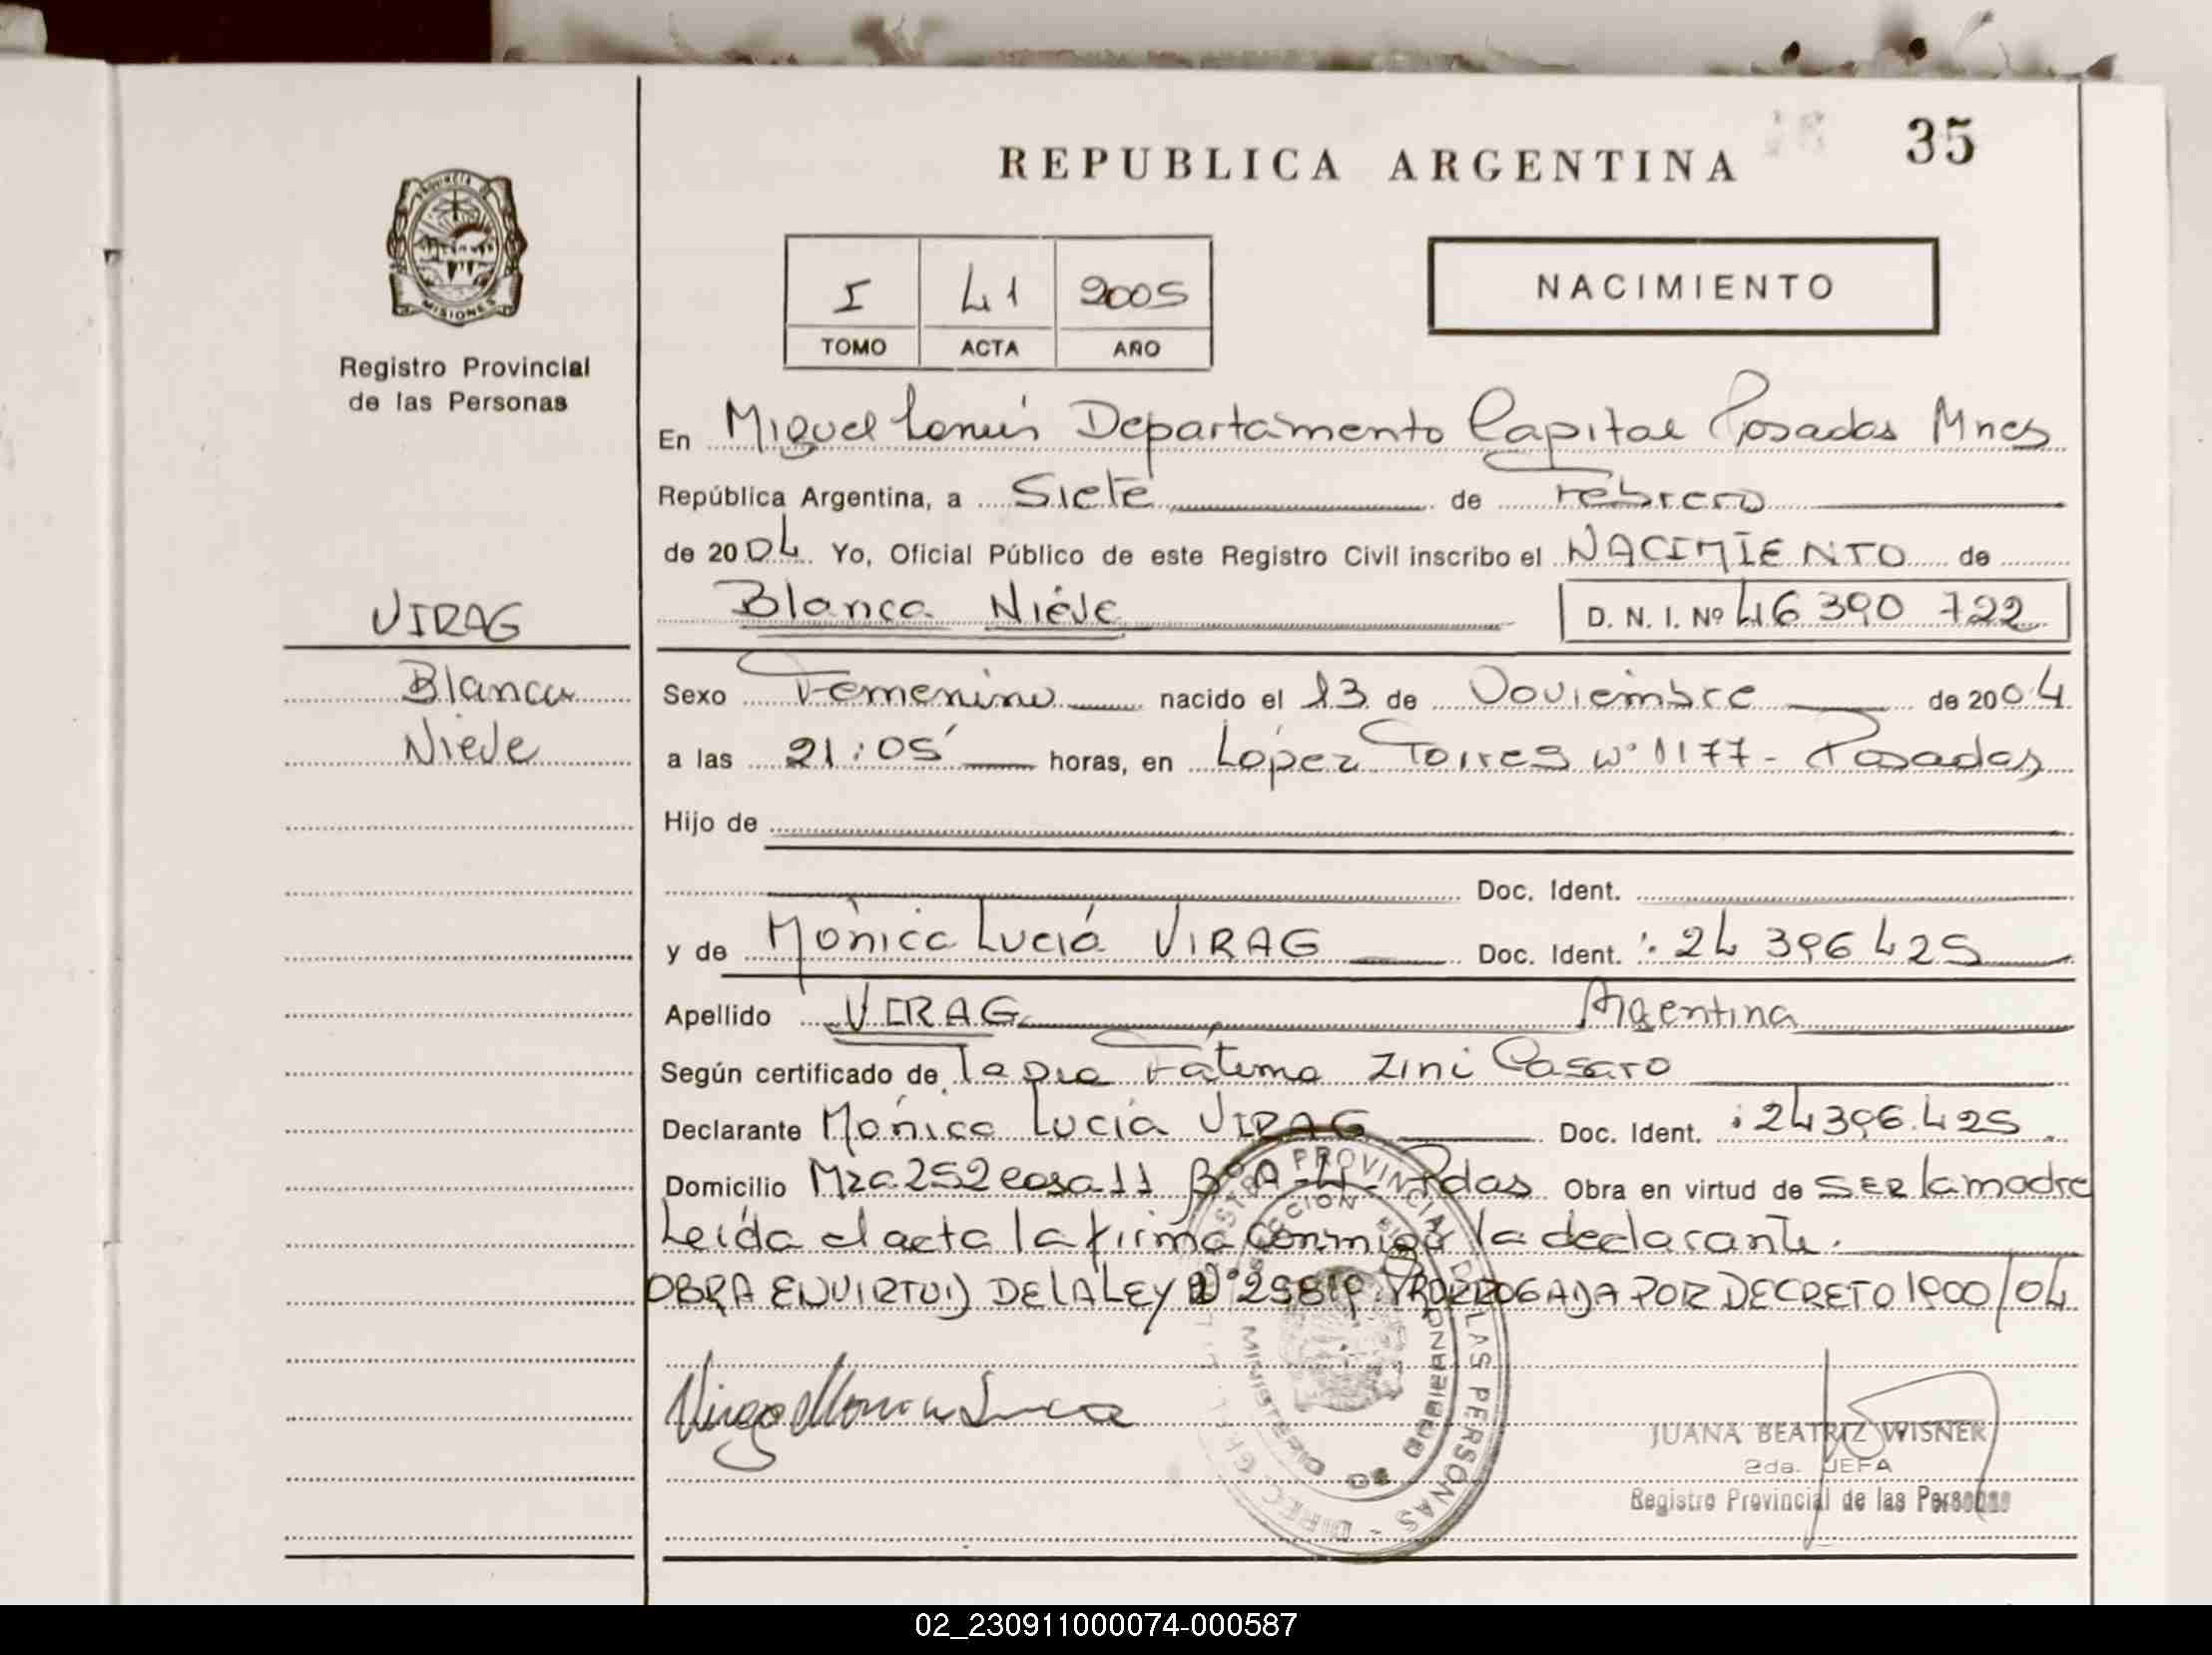 35
REPUBLICA ARGENTINA
PROVINCIA DE
MISIONES
I 41 2005
TOMO ACTA AÑO
NACIMIENTO
Registro Provincial
de las Personas
En Miguel Lanús Departamento Capital Posadas Mnes
República Argentina, a Siete de Febrero
de 2004 Yo, Oficial Público de este Registro Civil inscribo el NACIMIENTO de
VIRAG
Blanca Nieve D. N. I. Nº 46 390 722
Blanca
Nieve
Sexo Femenino nacido el 13 de Noviembre de 2004
a las 21:05 horas, en López Torres Nº 1177 - Posadas
Hijo de
Doc. Ident.
y de Mónica Lucía VIRAG Doc. Ident. : 24 396 425
Apellido VIRAG Argentina
Según certificado de Fátima Zini Casaro
Declarante Mónica Lucía VIRAG Doc. Ident. : 24396.425
Domicilio Mza 252 casa 11 Bº A-4- Pdas Obra en virtud de SER la madre
Leída el acta la firma conmigo la declarante.
OBRA EN VIRTUD DE LA LEY Nº 25819 PRORROGADA POR DECRETO 1900/04
PROVINCIAL DE LAS PERSONAS - DIREC. GRAL.
MINISTERIO DE GOBIERNO
JUANA BEATRIZ WISNER
2da. JEFA
Registro Provincial de las Personas
02_230911000074-000587